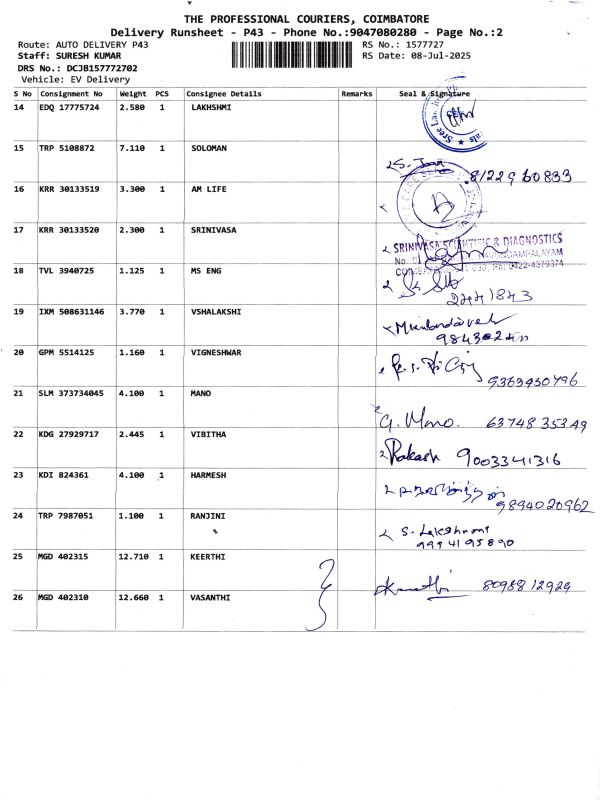 THE PROFESSIONAL COURIERS, COIMBATORE
Delivery Runsheet - P43 - Phone No.:9047080280 - Page No.:2
Route: AUTO DELIVERY P43 RS No.: 1577727
Staff: SURESH KUMAR RS Date: 08-Jul-2025
DRS No.: DCJB157772702
Vehicle: EV Delivery
S No Consignment No Weight PCS Consignee Details Remarks Seal & Signature
14 EDQ 17775724 2.580 1 LAKHSHMI
15 TRP 5108872 7.110 1 SOLOMAN
8122960833
16 KRR 30133519 3.300 1 AM LIFE
17 KRR 30133520 2.300 1 SRINIVASA
SRINIVASA SCIENTIFIC & DIAGNOSTICS
18 TVL 3940725 1.125 1 MS ENG
2441843
19 IXM 508631146 3.770 1 VSHALAKSHI
20 GPM 5514125 1.160 1 VIGNESHWAR
9363930796
21 SLM 373734045 4.100 1 MANO
G. Mano. 63748 35349
22 KDG 27929717 2.445 1 VIBITHA
Prakash 9003341316
23 KDI 824361 4.100 1 HARMESH
9894020962
24 TRP 7987051 1.100 1 RANJINI
S. Lakshmi
9994195890
25 MGD 402315 12.710 1 KEERTHI
8098812929
26 MGD 402310 12.660 1 VASANTHI